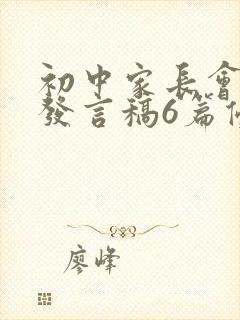 初中家長會
發言稿6篇
廖峰